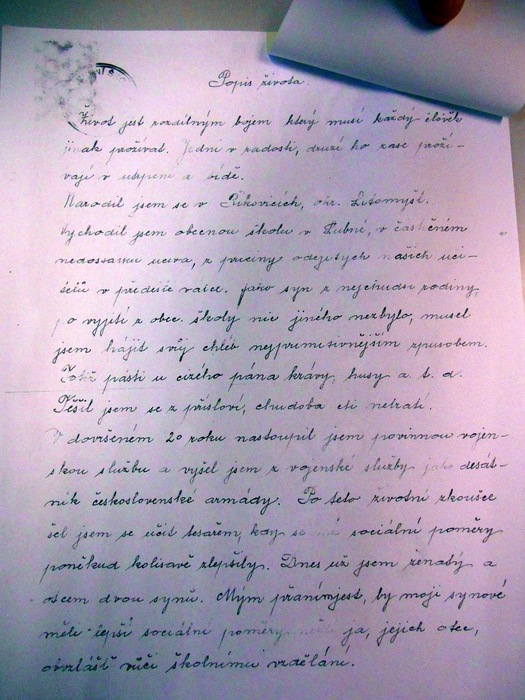 Popis života.
Život jest rozdílným bojem který musí každý člověk
jinak prožívat. Jedni v radosti, druzí ho zase proží-
vají v utrpení a bídě.
Narodil jsem se v Sukovicích, okr. Litomyšl.
Vychodil jsem obecnou školu v Lubné, v částečném
nedostatku učiva, z příčiny odejetých našich uči-
telů v předešlé válce. Jako syn z nejchudší rodiny,
po vyjití z obec. školy nic jiného nezbylo, musel
jsem hájit svůj chléb nejprimitivnějším způsobem.
Totiž pásti u cizého pána krávy, husy a. t. d.
Těšil jsem se z přísloví, chudoba cti netratí.
V dovršeném 20 roku nastoupil jsem povinnou vojen-
skou službu a vyšel jsem z vojenské služby jako desát-
ník československé armády. Po této životní zkoušce
šel jsem se učit tesařem, kdy se mé sociální poměry
poněkud kolísavě zlepšily. Dnes už jsem ženatý a
otcem dvou synů. Mým přáním jest, by moji synové
měli lepší sociální poměry než já, jejich otec,
obzvlášť vůči školnímu vzdělání.